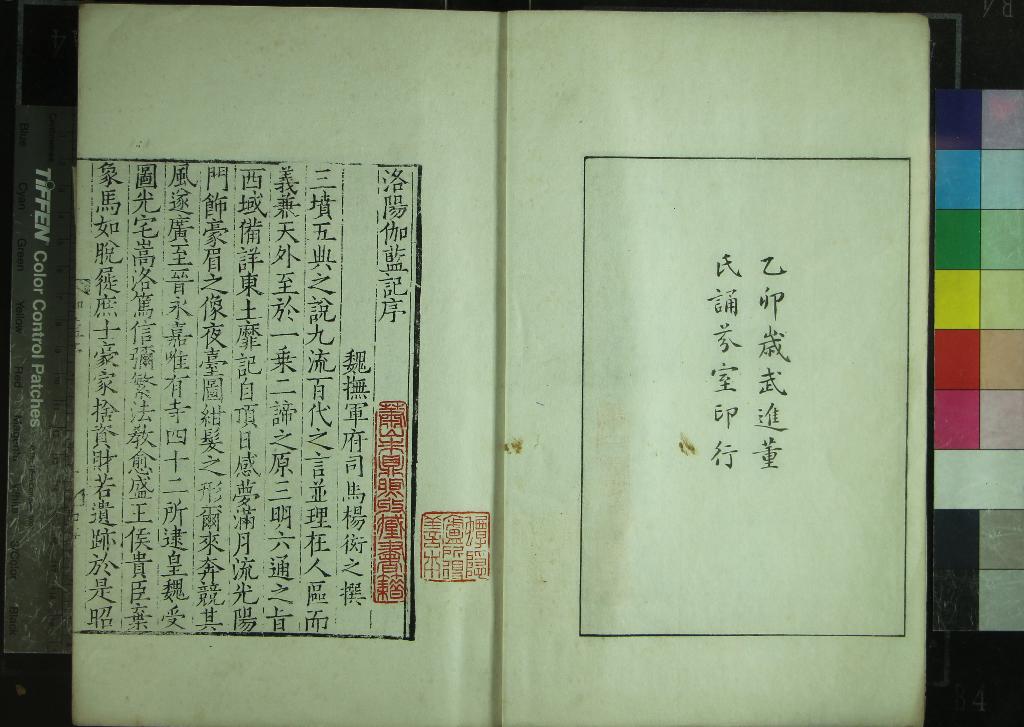 乙卯歲武進董
氏誦芬室印行
洛陽伽藍記序
魏撫軍府司馬楊衒之撰
三墳五典之說九流百代之言並理在人區而
義兼天外至於一乘二諦之原三明六通之旨
西域備詳東土靡記自項日感夢滿月流光陽
門飾豪眉之像夜臺圖紺髮之形爾來奔競其
風遂廣至晉永嘉唯有寺四十二所逮皇魏受
圖光宅嵩洛篤信彌繁法教愈盛王侯貴臣棄
象馬如脫屣庶士豪家捨資財若遺跡於是昭
TIFFEN Color Control Patches
Blue
Cyan
Green
Yellow
Red
Magenta
White
3/Color
Black
B4